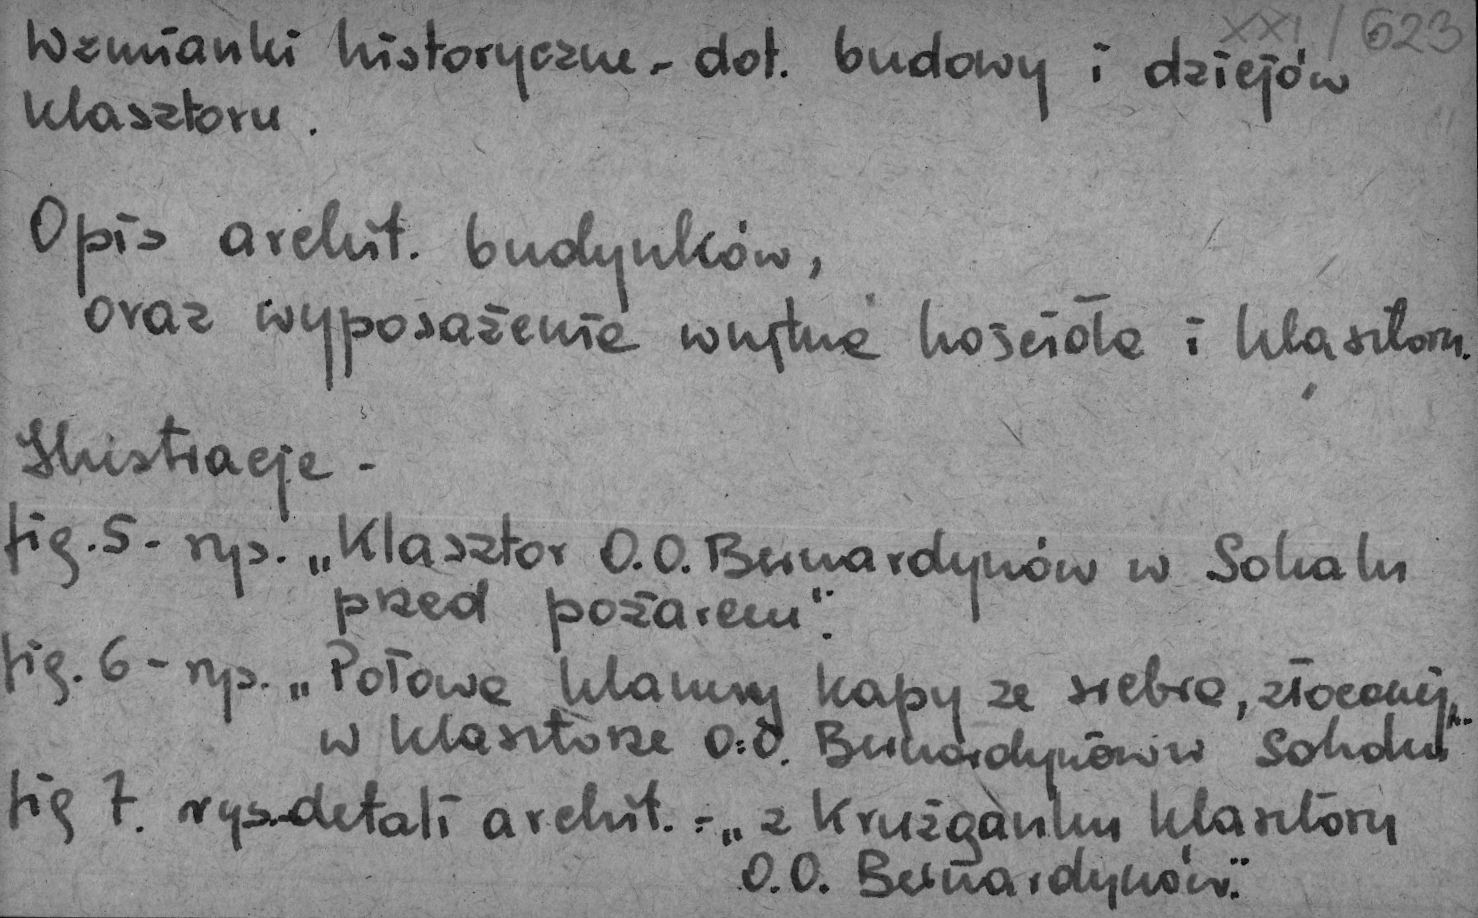 XXI / 623
Wzmianki historyczne - dot. budowy i dziejów
klasztoru.
Opis archit. budynków,
oraz wyposażenie wnętrz kościoła i klasztoru.
Ilustracje -
fig. 5 - rys. „Klasztor O.O. Bernardynów w Sokalu
przed pożarem".
fig. 6 - rys. „Połowa klamry kapy ze srebra, złoconej,
w klasztorze O.O. Bernardynów w Sokalu"
fig 7. rys. detali archit. - „z Krużganku klasztoru
O.O. Bernardynów".